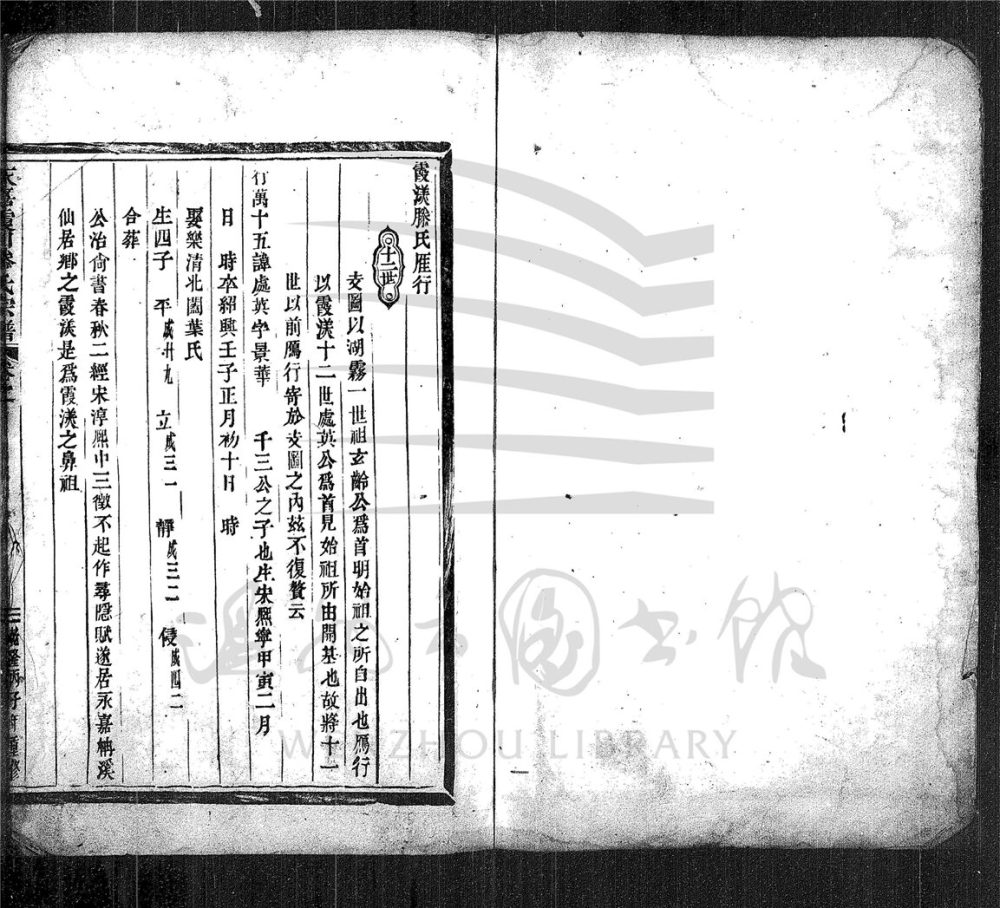 霞渼滕氏雁行
十二世
支圖以湖霧一世祖玄齡公爲首明始祖之所自出也鴈行
以霞渼十二世處英公爲首見始祖所由開基也故將十一
世以前鴈行寄於支圖之內玆不復贅云
行萬十五諱處英字景華 千三公之子也生宋熙寧甲寅二月
日 時卒紹興壬子正月初十日 時
娶樂清北閤葉氏
生四子 平成卅九 立成三一 靜成三二 侵成四二
合葬
公治尙書春秋二經宋淳熙中三徵不起作尋隱賦遂居永嘉楠溪
仙居鄕之霞渼是爲霞渼之鼻祖
氏宗譜
WENZHOU LIBRARY